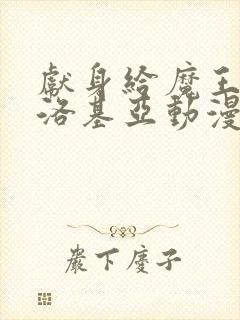 獻身給魔王
洛基亞動漫
嚴下慶子